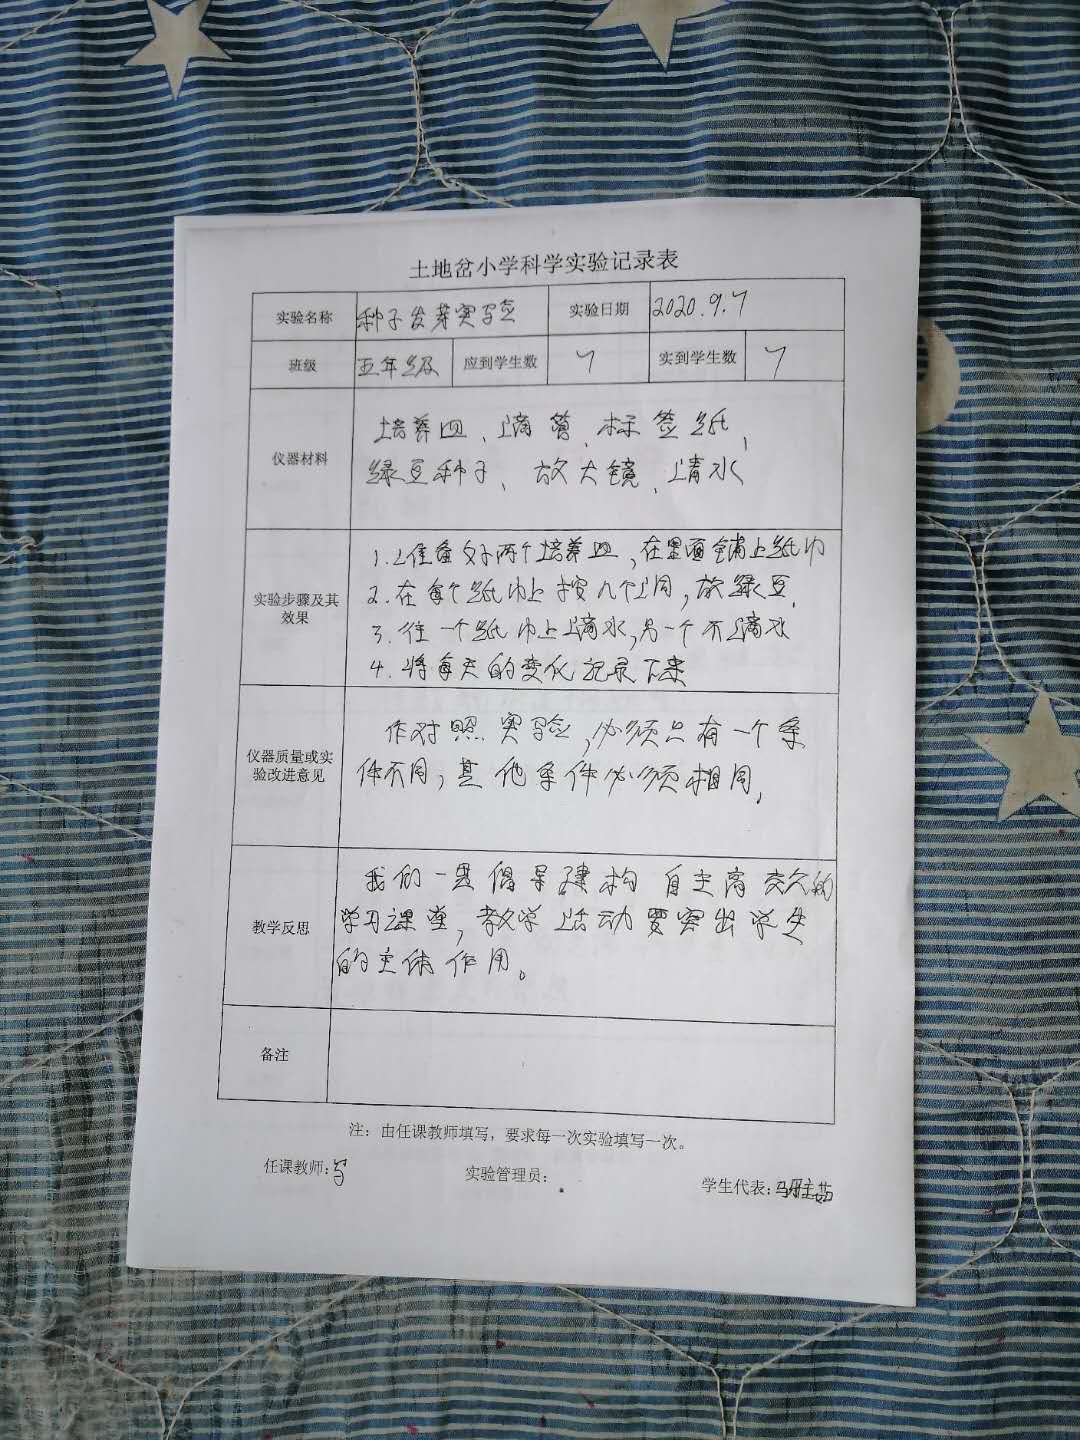 土地岔小学科学实验记录表
实验名称 种子发芽实验 实验日期 2020.9.7
班级 五年级 应到学生数 7 实到学生数 7
仪器材料
培养皿、滴管、标签纸、
绿豆种子、放大镜、清水
实验步骤及其
效果
1.准备好两个培养皿,在里面铺上纸巾
2.在每个纸巾上按几个洞,放绿豆.
3.往一个纸巾上滴水,另一个不滴水
4.将每天的变化记录下来
仪器质量或实
验改进意见
作对照实验,必须只有一个条
件不同,其他条件必须相同.
教学反思
我们一贯倡导建构自主高效的
学习课堂,教学活动要突出学生
的主体作用。
备注
注：由任课教师填写，要求每一次实验填写一次。
任课教师:
实验管理员:
学生代表: